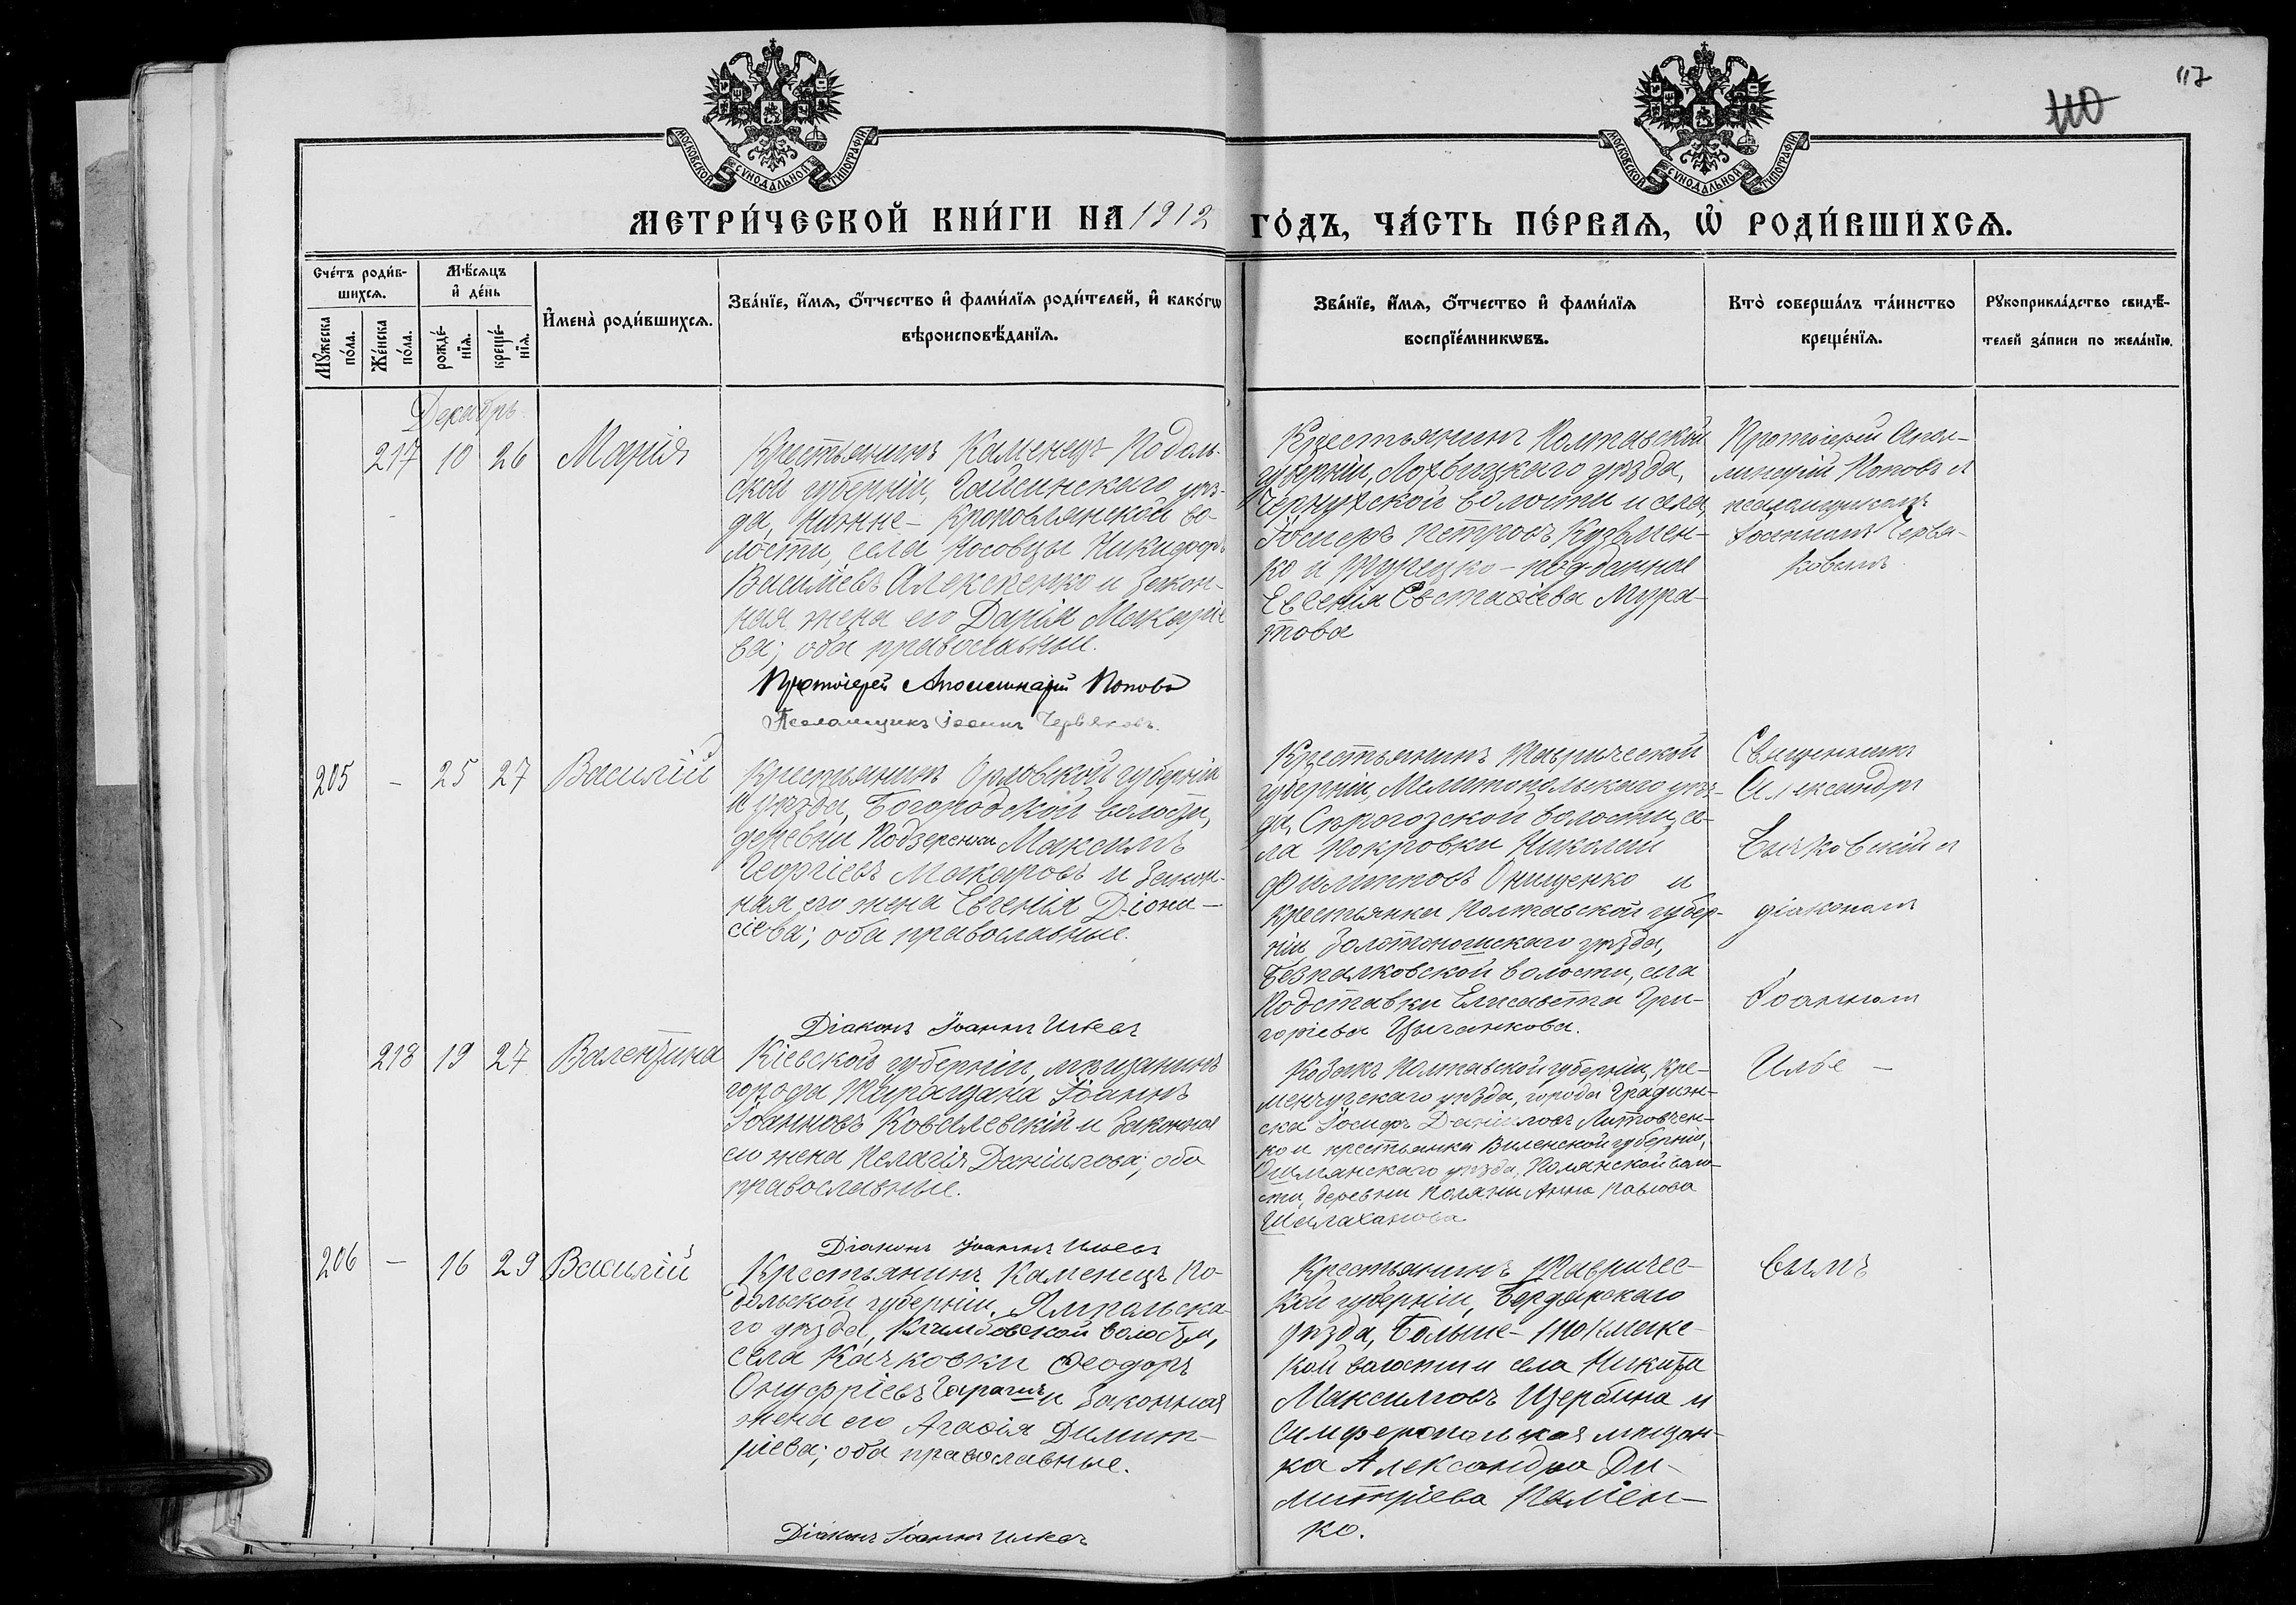 117
110
МОСКОВСКОЙ СУНОДАЛЬНОЙ ТИПОГРАФІИ
МОСКОВСКОЙ СУНОДАЛЬНОЙ ТИПОГРАФІИ
МЕТРИ́ЧЕСКОЙ КНИ́ГИ НА 1912 ГО́ДЪ, ЧА́СТЬ ПЕ́РВАѦ, Ѡ҆ РОДИ́ВШИХСѦ.
Сче́тъ роди́в-
шихсѧ.
Мꙋжеска по́ла.
Же́нска по́ла.
Мѣ́сѧцъ
и҆ де́нь
рожде́-
нїѧ.
креще́-
нїѧ.
И҆мена̀ роди́вшихсѧ.
Зва́нїе, и҆́мѧ, ѻ҆́тчество и҆ фами́лїѧ роди́телей, и҆ како́гѡ
вѣроисповѣ́данїѧ.
Зва́нїе, и҆́мѧ, ѻ҆́тчество и҆ фами́лїѧ
воспрїе́мникѡвъ.
Кто̀ соверша́лъ та́инство
креще́нїѧ.
Рꙋкоприкла́дство свидѣ́-
телей за́писи по жела́нїю.
Декабрь.
217 10 26 Марія
Крестьянинъ Каменецъ-Подоль-
ской губерніи, Гайсинскаго уѣз-
да, Нижне-Кропивлянской во-
лости, села Носовцы Никифоръ
Василіевъ Алексѣенко и закон-
ная жена его Дарія Макаріе
ва; оба православные.
Протоіерей Аполлинарій Поповъ
Псаломщикъ Іоаннъ Червяковъ.
Крестьянинъ Полтавской
губерніи, Лохвицкаго уѣзда,
Чернухской волости и села,
Іосифъ Петровъ Кузьмен-
ко и Турецко-подданная
Евгенія Евстаѳіева Мура-
това
Протоіерей Апол-
линарій Поповъ и
псаломщикомъ
Іоанномъ Червя-
ковымъ
205 - 25 27 Василій
Крестьянинъ Орловской губерніи
и уѣзда, Богородской волости,
деревни Подзеренки Максимъ
Георгіевъ Макаровъ и закон-
ная его жена Евгенія Діони-
сіева; оба православные.
Діаконъ Іоаннъ Илье
Крестьянинъ Таврической
губерніи, Мелитопольскаго уѣз-
да, Сѣрогозской волости, се-
ла Покровки Николай
Филипповъ Онищенко и
крестьянка Полтавской губер-
ніи Золотоношскаго уѣзда,
Безпалковской волости, села
Подставки Елисавета Гри-
горіева Цыганкова.
Священникъ
Александръ
Бычковскій и
діакономъ
Іоанномъ
Илье -
вымъ
218 19 27 Валентина
Кіевской губерніи, мѣщанинъ
города Таращана Іоаннъ
Іоанновъ Ковалевскій и законная
его жена Пелагія Даніилова; оба
православные.
Діаконъ Іоаннъ Ильевъ
Козакъ Полтавской губерніи, Кре-
менчугскаго уѣзда, города Градиж-
ска Іосифъ Даніиловъ Литовчен-
ко и крестьянка Виленской губерніи,
Ошмянскаго уѣзда, Полянской воло-
сти, деревни Поляны Анна Павлова
206 - 16 29 Василій
Крестьянинъ Каменецъ По-
дольской губерніи, Ямпольска-
го уѣзда, Климбовской волости,
села Качковки Ѳеодоръ
Онуфріевъ и законная
жена его Агаѳія Димит-
ріева; оба православные.
Діаконъ Іоаннъ Ильевъ
Крестьянинъ Тавричес-
кой губерніи, Бердянскаго
уѣзда, Больше-Токмакс-
кой волости и села Никита
Максимовъ Щербина и
Симферопольская мѣщан-
ка Александра Ди-
митріева
ко.